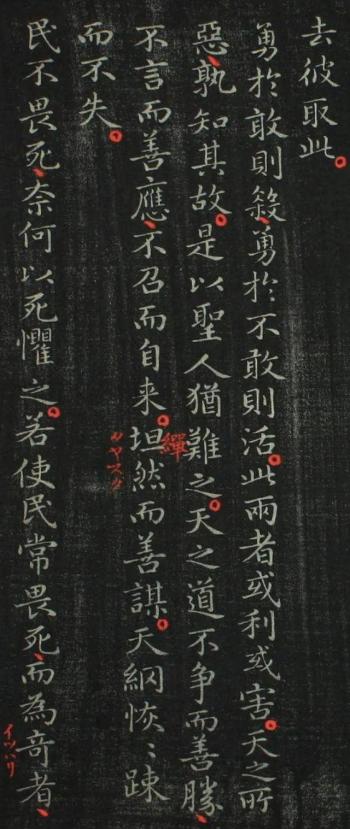 去彼取此。
勇於敢則殺、勇於不敢則活。此兩者或利或害。天之所
惡、孰知其故。是以聖人猶難之。天之道不争而善勝、
不言而善應、不召而自来。坦然而善謀。天網恢〻踈
繟
カヤスク
而不失。
民不畏死、奈何以死懼之。若使民常畏死、而為奇者、
イツハリ